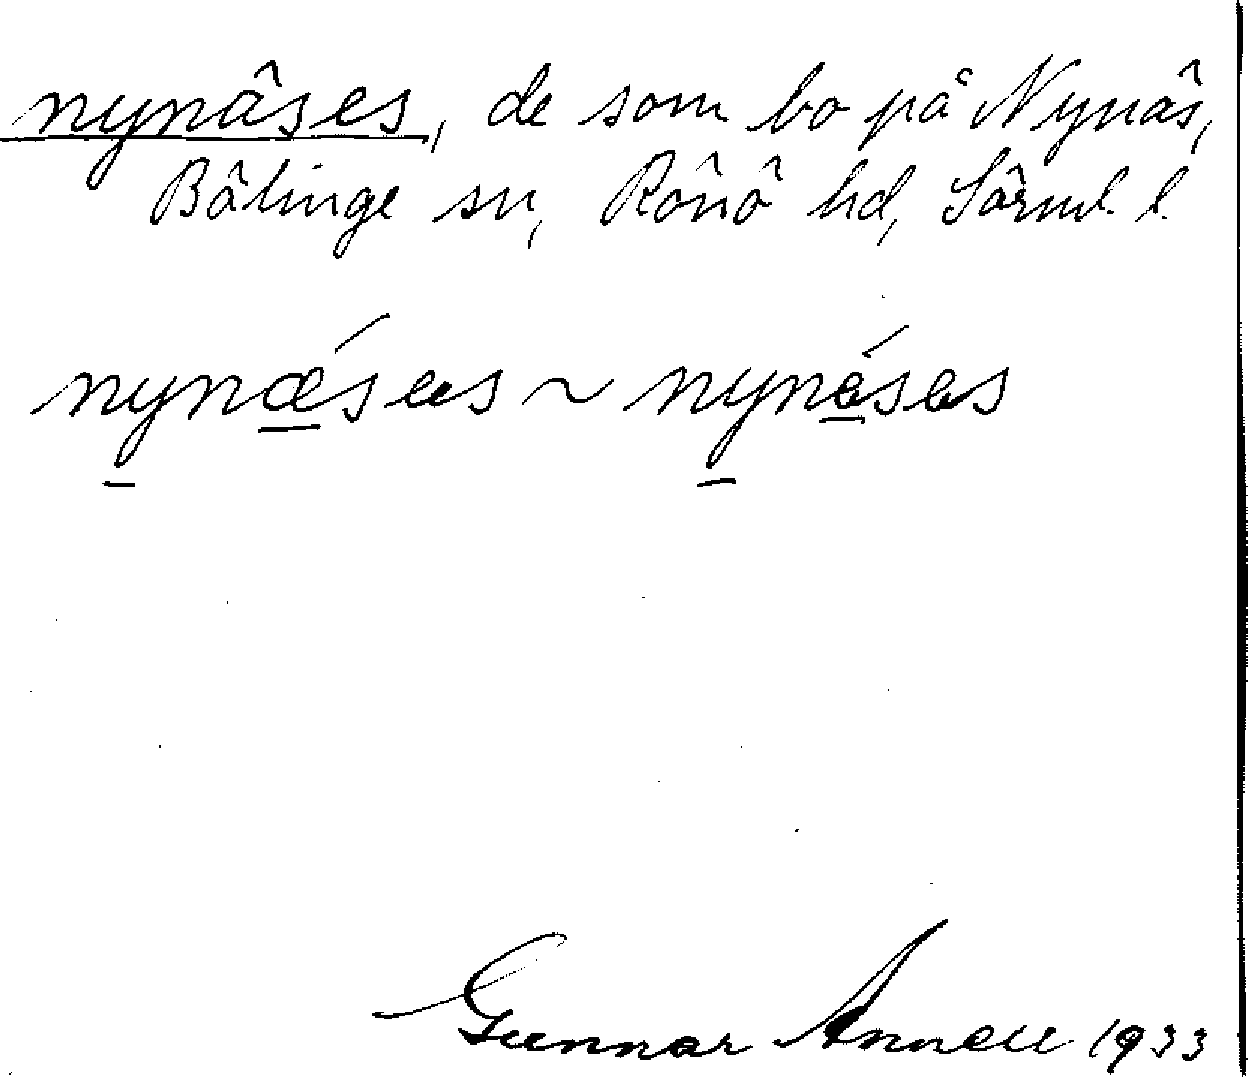 nynâses, de som bo på Nynâs,
Bâlinge sn, Rônô hd, Sôrml. l.
nynǽses ~ nynésəs
Gunnar Annell 1933